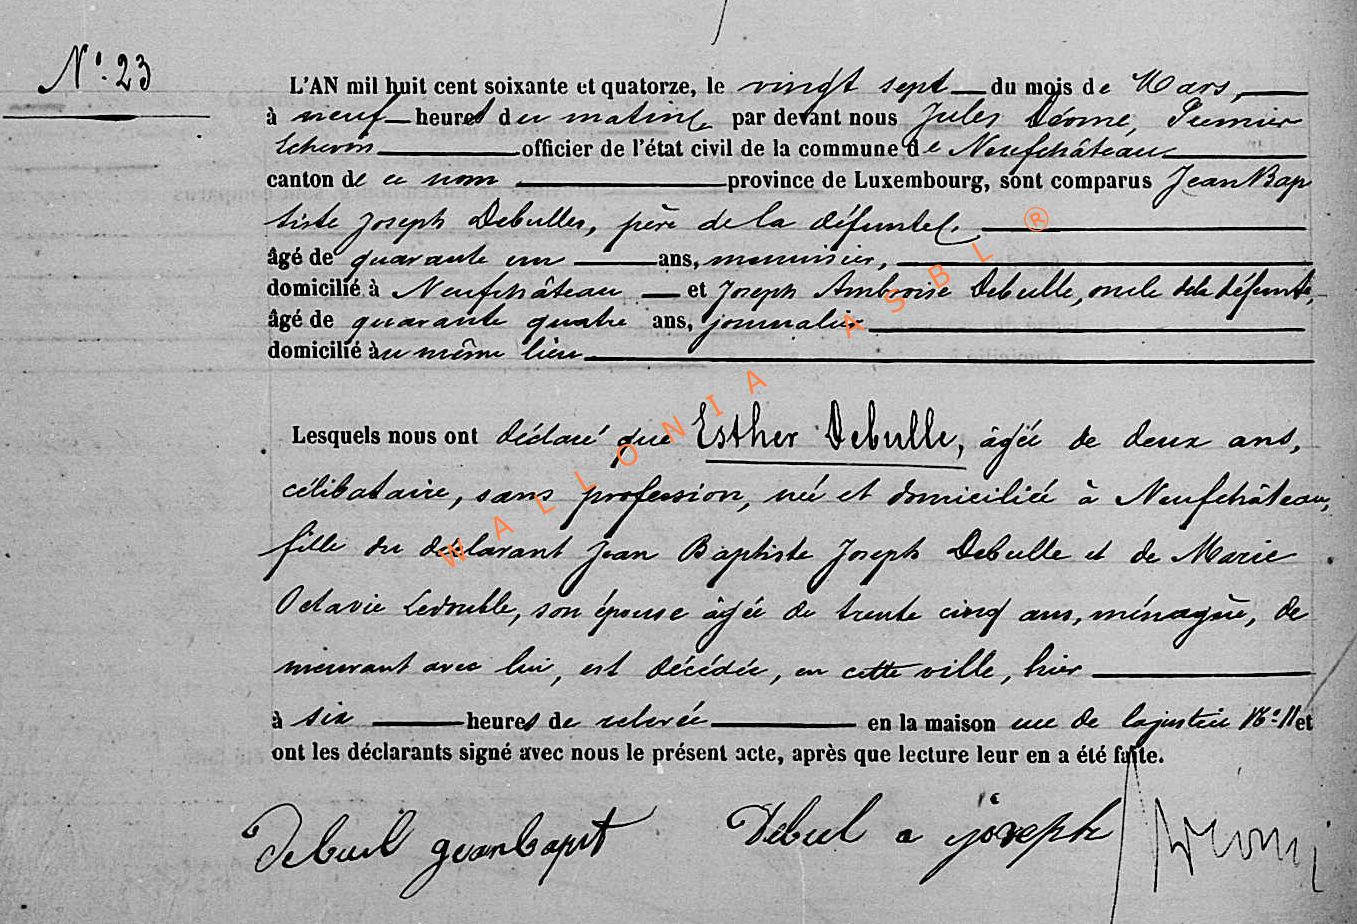 N° 23
L'AN mil huit cent soixante et quatorze, le vingt sept du mois de Mars,
à neuf heures du matin par devant nous Jules Déome, Premier
Echevin officier de l'état civil de la commune de Neufchâteau
canton de ce nom province de Luxembourg, sont comparus Jean Bap
tiste Joseph Debulle, père de la défunte,
âgé de quarante un ans, menuisier,
domicilié à Neufchâteau et Joseph Ambroise Debulle, oncle de la défunte,
âgé de quarante quatre ans, journalier
domicilié au même lieu
Lesquels nous ont déclaré que Esther Debulle, âgée de deux ans,
célibataire, sans profession, née et domiciliée à Neufchâteau,
fille du déclarant Jean Baptiste Joseph Debulle et de Marie
Octavie Ledouble, son épouse âgée de trente cinq ans, ménagère, de
meurant avec lui, est décédée, en cette ville, hier
à six heures de relevée en la maison rue de la justice N° 11 et
ont les déclarants signé avec nous le présent acte, après que lecture leur en a été faite.
Debuil jeanbapt Debul a joseph
WALLONIA ASBL ®